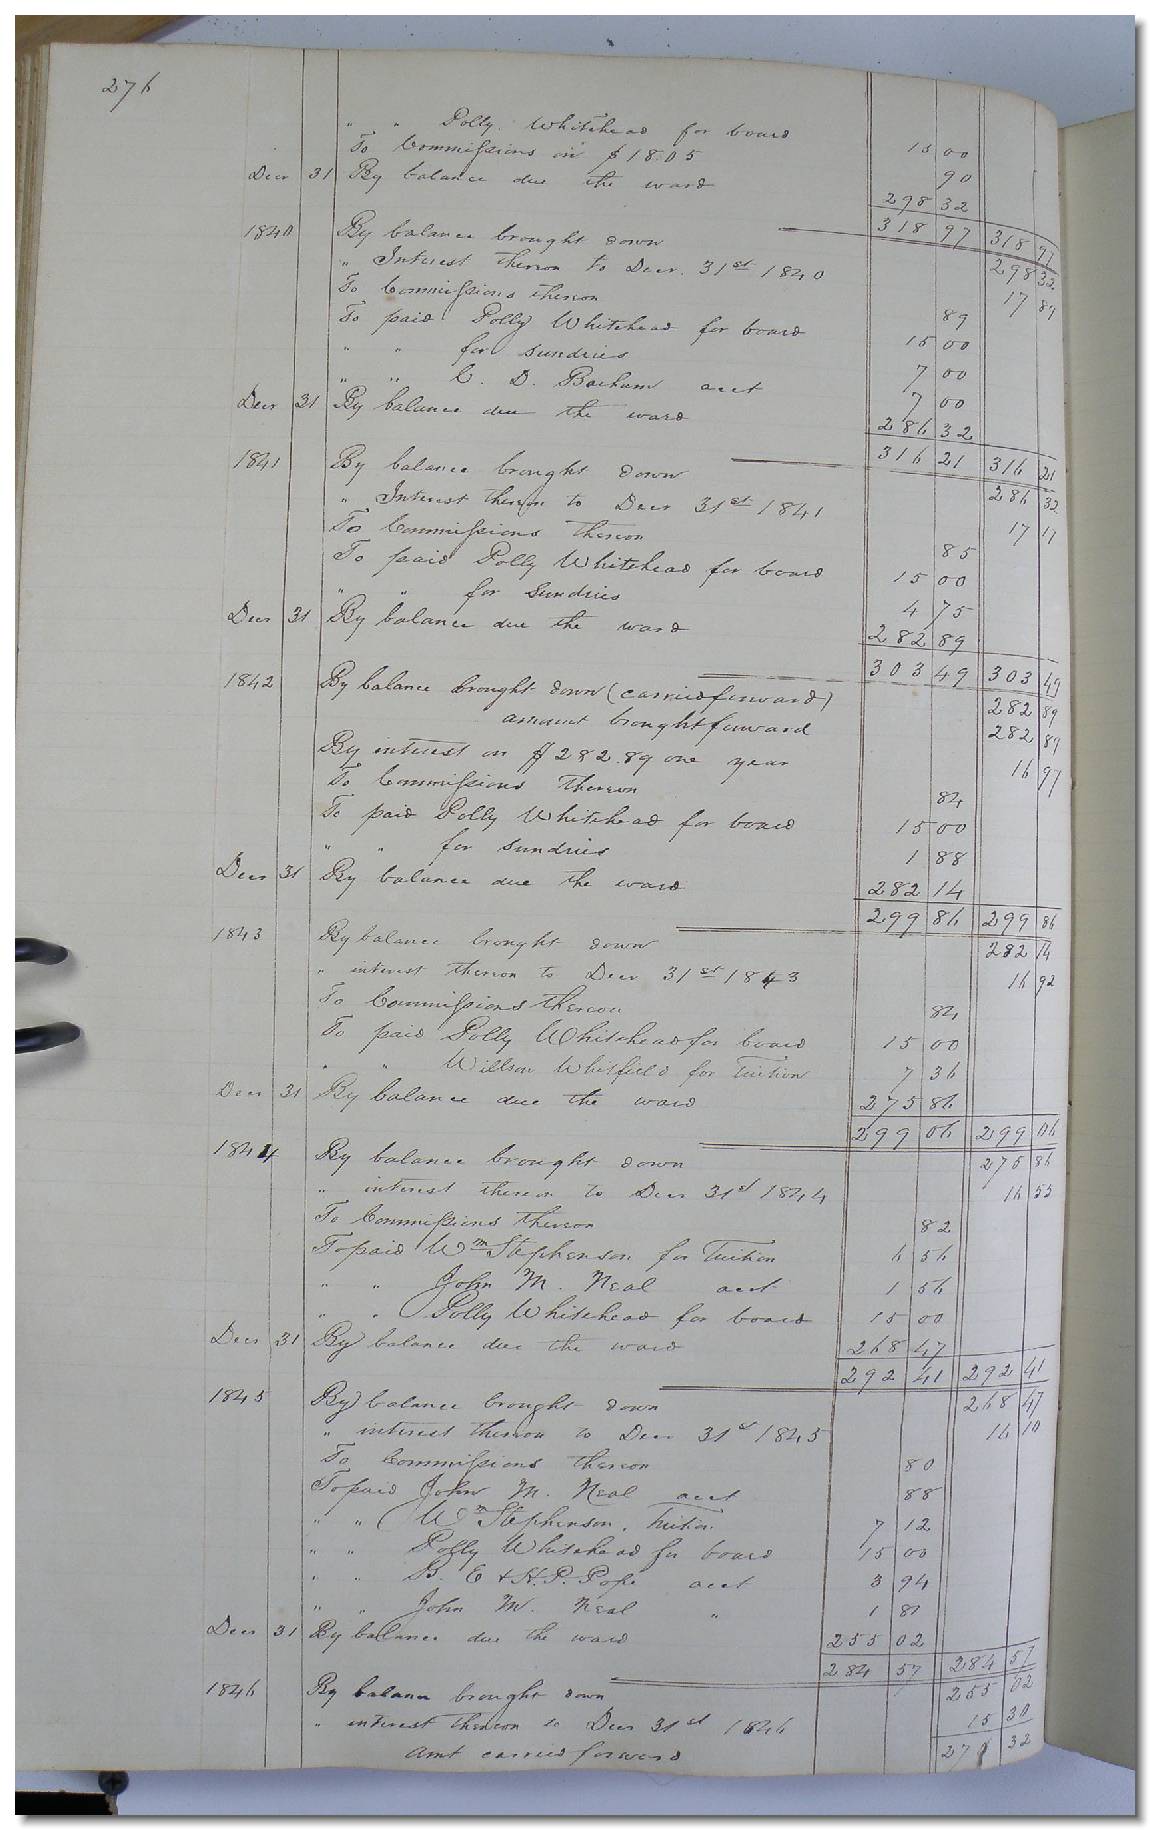 276
" " Polly Whitehead for board 15 00
To Commissions on $18.05 90
Decr 31 By balance due the ward 298 32
318 97 318 97
1840 By balance brought down 298 32
" Interest thereon to Decr. 31st 1840 17 89
To Commissions thereon 89
To paid Polly Whitehead for board 15 00
" " for sundries 7 00
" " C. D. Barham acct 7 00
Decr 31 By balance due the ward 286 32
316 21 316 21
1841 By balance brought down 286 32
" Interest thereon to Decr 31st 1841 17 17
To Commissions thereon 85
To paid Polly Whitehead for board 15 00
" " for Sundries 4 75
Decr 31 By balance due the ward 282 89
303 49 303 49
1842 By balance brought down (carried forward) 282 89
amount brought forward 282 89
By interest on $282.89 one year 16 97
To Commissions thereon 84
To paid Polly Whitehead for board 15 00
" " for sundries 1 88
Decr 31 By balance due the ward 282 14
299 86 299 86
1843 By balance brought down 282 14
" interest thereon to Decr 31st 1843 16 92
To Commissions thereon 84
To paid Polly Whitehead for board 15 00
" " Willson Whitfield for Tuition 7 36
Decr 31 By balance due the ward 275 86
299 06 299 06
1844 By balance brought down 275 86
" interest thereon to Decr 31st 1844 16 55
To Commissions thereon 82
To paid Wm Stephenson for Tuition 6 56
" " John M. Neal acct 1 56
" " Polly Whitehead for board 15 00
Decr 31 By balance due the ward 268 47
292 41 292 41
1845 By balance brought down 268 47
" interest thereon to Decr 31st 1845 16 10
To Commissions thereon 80
To paid John M. Neal acct 88
" " Wm Stephenson, tuition 7 12
" " Polly Whitehead for board 15 00
" " B. E & H. P. Pope acct 3 94
" " John M. Neal " 1 81
Decr 31 By balance due the ward 255 02
284 57 284 57
1846 By balance brought down 255 02
" interest thereon to Decr 31st 1846 15 30
Amt carried forward 270 32